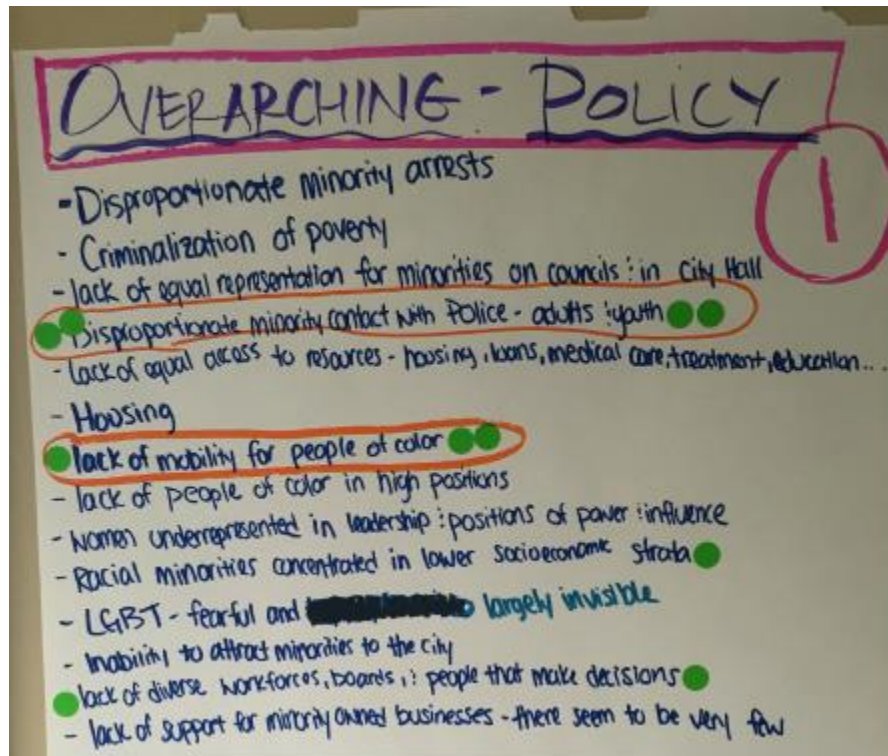 OVERARCHING - POLICY
1
- Disproportionate minority arrests
- Criminalization of poverty
- lack of equal representation for minorities on councils & in City Hall
Disproportionate minority contact with Police - adults & youth
- lack of equal access to resources - housing, loans, medical care, treatment, education...
- Housing
lack of mobility for people of color
- lack of people of color in high positions
- women underrepresented in leadership & positions of power & influence
- Racial minorities concentrated in lower socioeconomic strata
- LGBT - fearful and largely invisible
- Inability to attract minorities to the city
lack of diverse workforces, boards, & people that make decisions
- lack of support for minority owned businesses - there seem to be very few